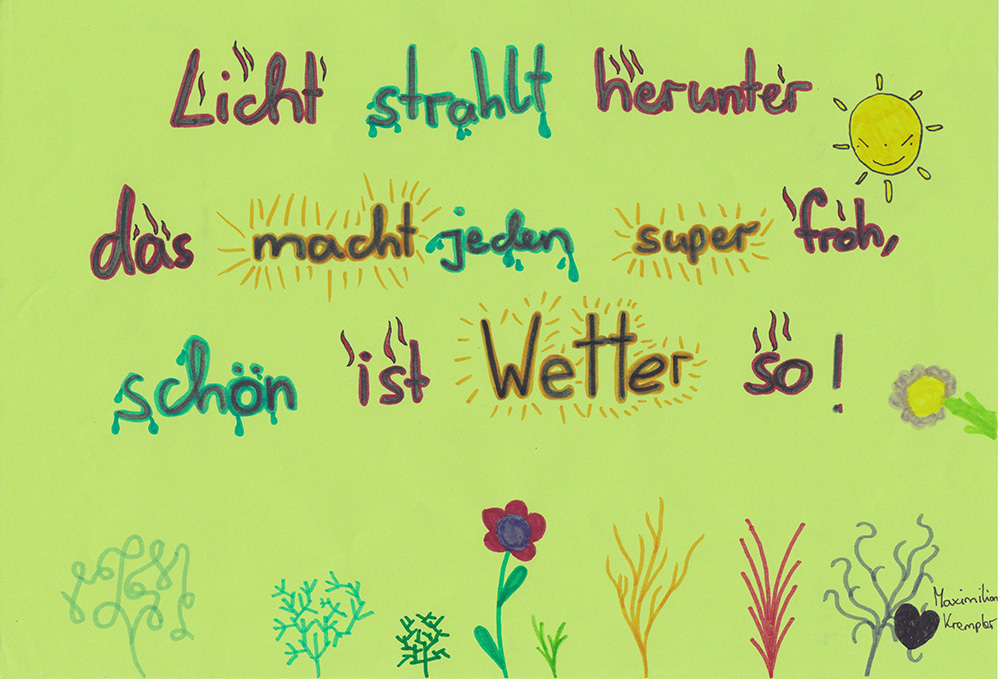 Licht strahlt herunter
das macht jeden super froh,
schön ist Wetter so!
Maximilian
Krempler